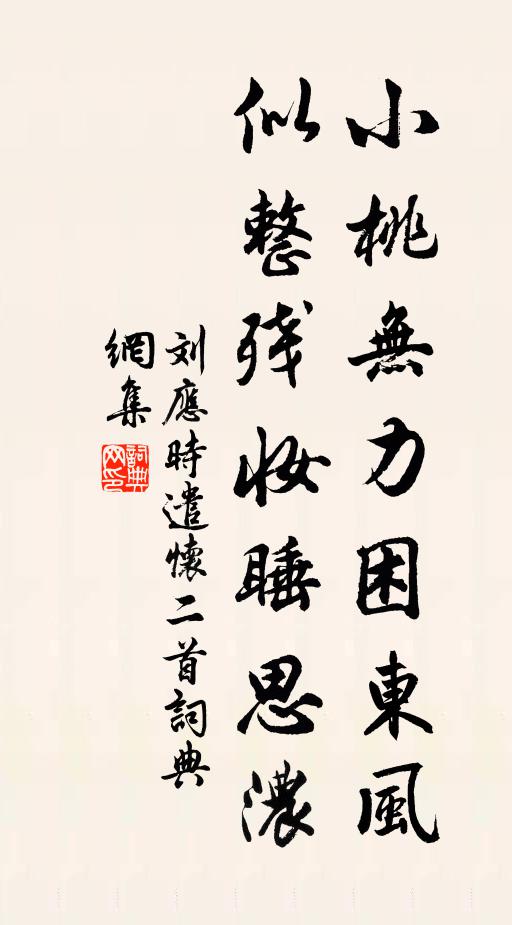 小桃無力困東風
似整残妝睡思濃
刘應時遣懷二首詞典
網集
詞典網印